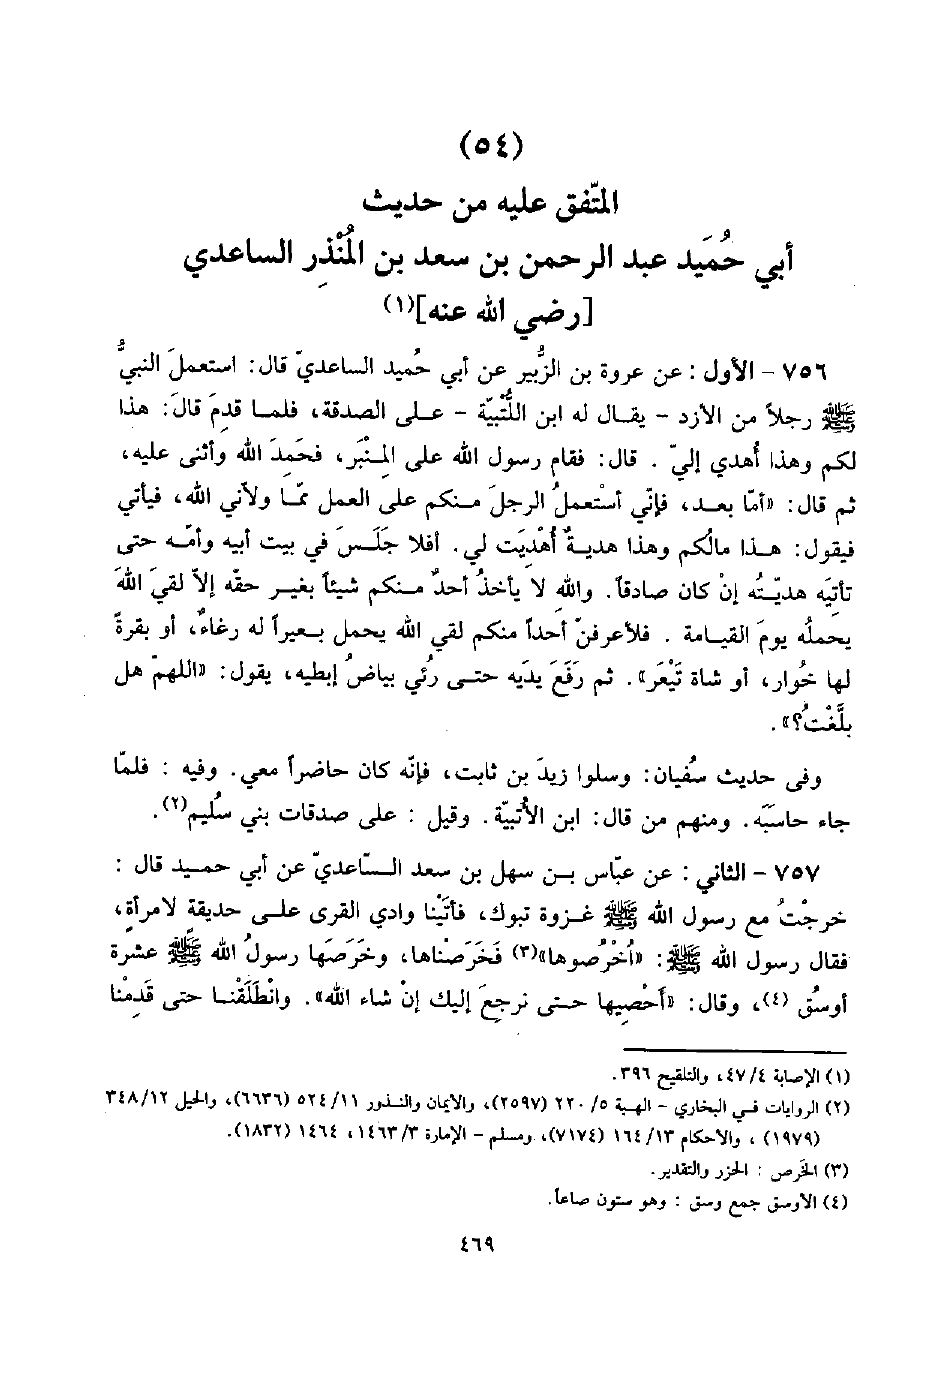 (٥٤)
المتّفق عليه من حديث
أبي حُمَيد عبد الرحمن بن سعد بن المُنْذِر الساعدي
[رضي الله عنه](١)
٧٥٦ - الأول: عن عروة بن الزُّبير عن أبي حُميد الساعديّ قال: استعملَ النبيُّ
ﷺ رجلاً من الأزد - يقال له ابن اللُّتبيّة - على الصدقة، فلما قدِمَ قالَ: هذا
لكم وهذا أُهدي إليّ . قال: فقام رسول الله على المِنْبَر، فحَمِدَ الله وأثنى عليه،
ثم قال: «أمّا بعد، فإنّي أستعملُ الرجلَ منكم على العمل ممّا ولاّني الله، فيأتي
فيقول: هذا مالُكم وهذا هديةٌ أُهْدِيَت لي. أفلا جَلَسَ في بيت أبيه وأمّه حتى
تأتيَه هديّتُه إنْ كان صادقاً. والله لا يأخذُ أحدٌ منكم شيئاً بغير حقّه إلاّ لقيَ اللهَ
يحملُه يومَ القيامة . فلأعرفنّ أحداً منكم لقي الله يحمل بعيراً له رغاءٌ، أو بقرةً
لها خُوار، أو شاة تَيْعَر». ثم رَفَعَ يدَيه حتى رُئي بياضُ إبطيه، يقول: «اللهمّ هل
بلَّغْتُ؟».
وفي حديث سُفيان: وسلوا زيدَ بن ثابت، فإنّه كان حاضراً معي. وفيه : فلمّا
جاء حاسبَه. ومنهم من قال: ابن الأُتبيّة. وقيل : على صدقات بني سُليم(٢).
٧٥٧ - الثاني : عن عبّاس بن سهل بن سعد السّاعديّ عن أبي حميد قال :
خرجْتُ مع رسول الله ﷺ غزوة تبوك، فأتَيْنا وادي القرى على حديقةٍ لامرأةٍ،
فقال رسول الله ﷺ: «اُخْرُصوها»(٣) فَخَرَصْناها، وخَرَصَها رسولُ الله ﷺ عشرة
أوسُق (٤)، وقال: «أَحْصِيها حتى نرجعَ إليك إنْ شاء الله». وانْطَلَقْنا حتى قَدِمْنا
(١) الإصابة ٤/ ٤٧، والتلقيح ٣٩٦.
(٢) الروايات في البخاري - الهبة ٥/ ٢٢٠ (٢٥٩٧)، والأيمان والنذور ١١/ ٥٢٤ (٦٦٣٦)، والحيل ١٢/ ٣٤٨
(١٩٧٩) ، والأحكام ١٣/ ١٦٤ (٧١٧٤)، ومسلم - الإمارة ٣/ ١٤٦٣، ١٤٦٤ (١٨٣٢).
(٣) الخَرص : الحزر والتقدير.
(٤) الأوسق جمع وسق : وهو ستون صاعاً.
٤٦٩